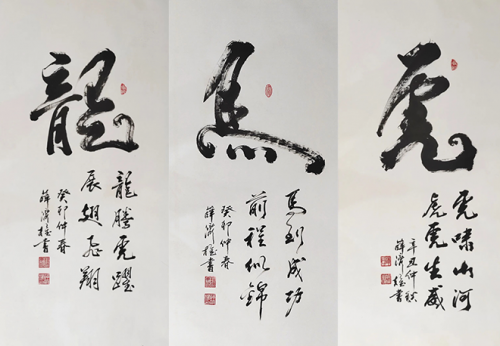 龍
龍騰虎躍
展翅飞翔
癸卯仲春
薛書
馬
馬到成功
前程似錦
癸卯仲春
薛書
虎
虎啸山河
虎虎生威
辛丑仲秋
薛書